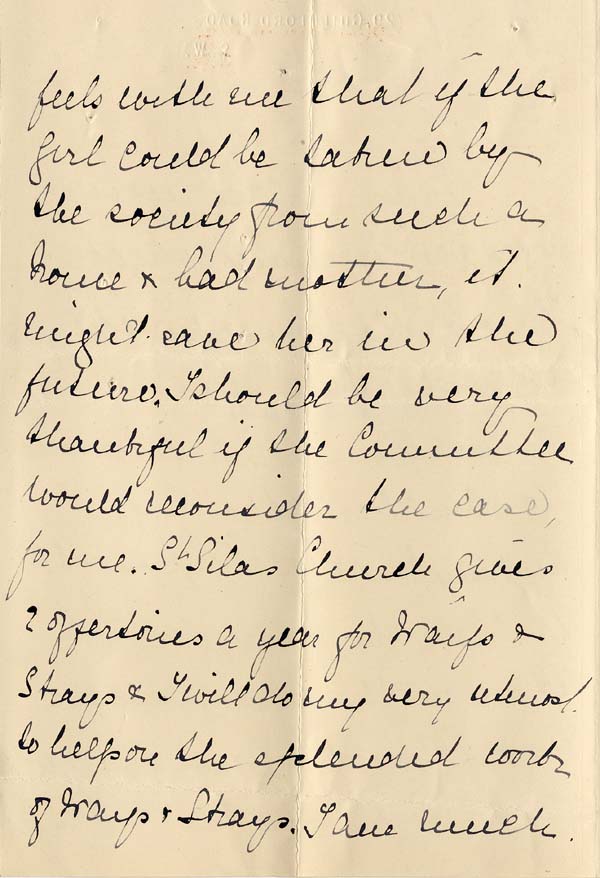 feels with me that if the
girl could be taken by
the society from such a
home & bad mother, it
might save her in the
future. I should be very
thankful if the Committee
would reconsider the case,
for me. St Silas Church gives
2 offertories a year for Waifs &
Strays & I will do my very utmost
to help on the splendid work
of Waifs & Strays. I am much